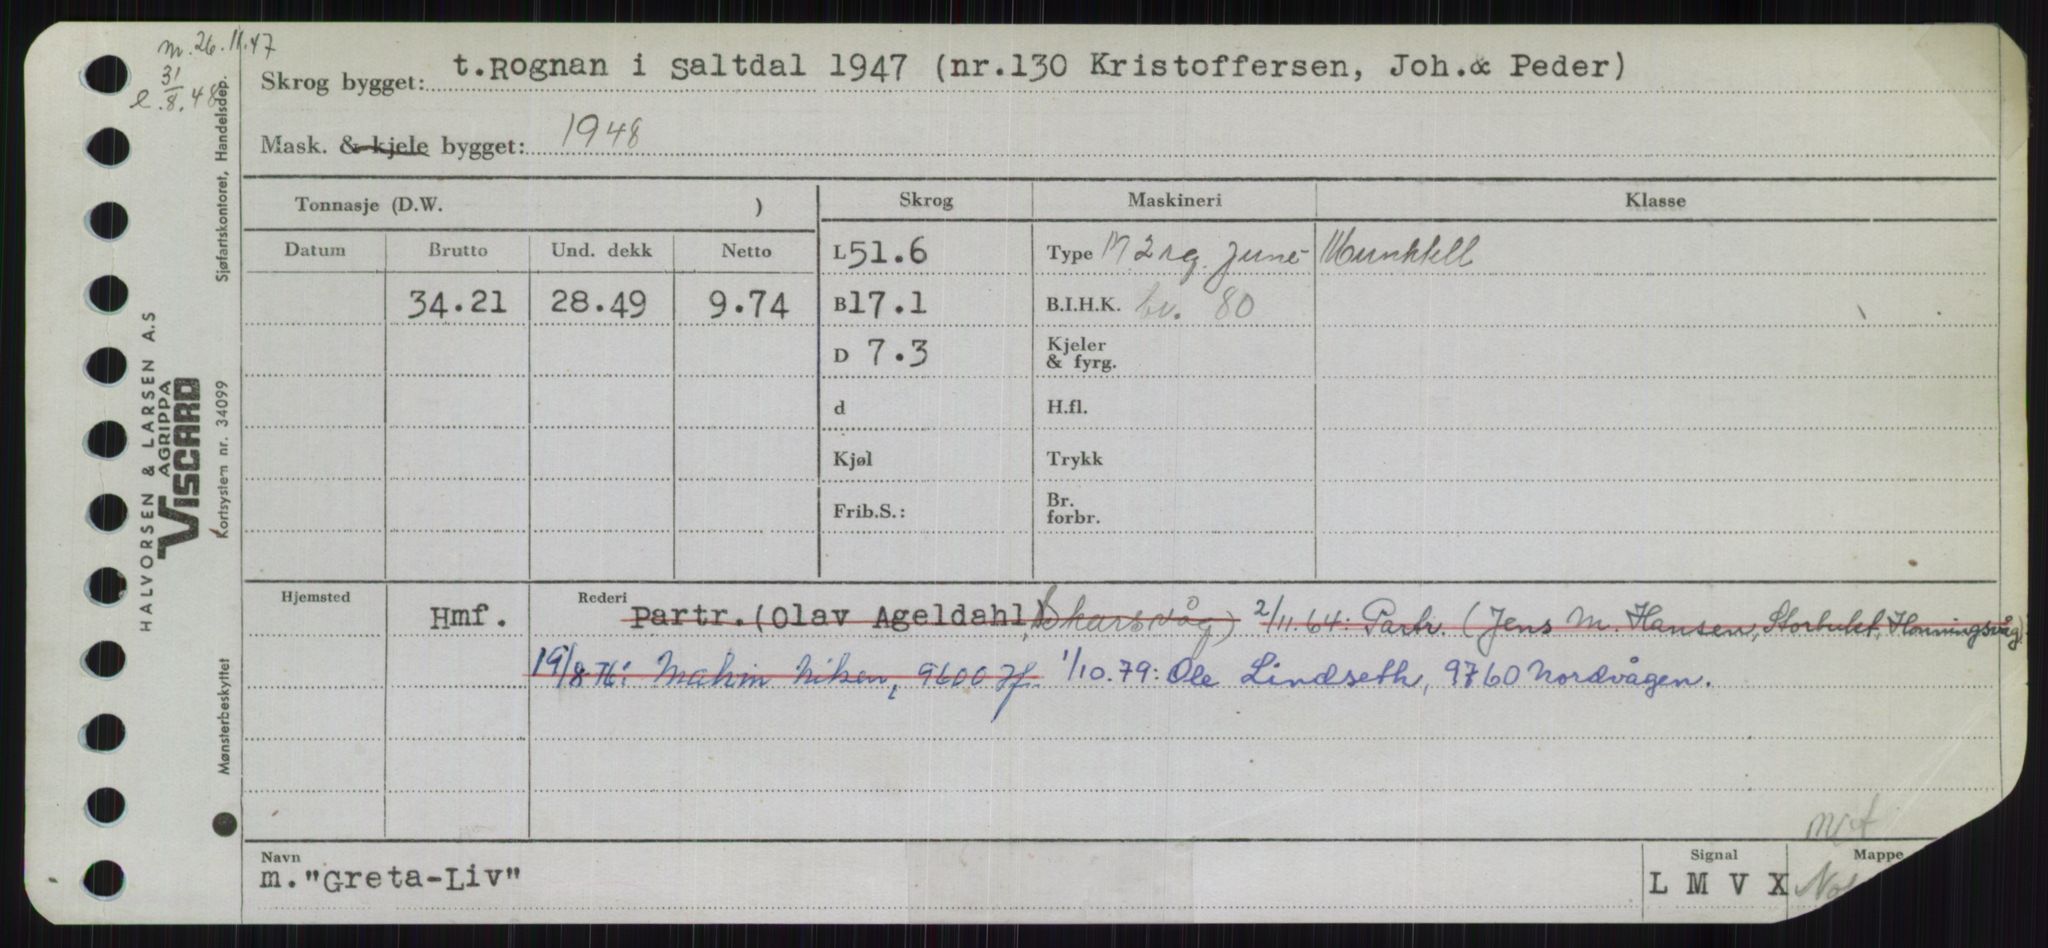 m. 26.11.47
e. 31/8.48
Skrog bygget: t.Rognan i Saltdal 1947 (nr.130 Kristoffersen, Joh.& Peder)
Mask. & kjele bygget: 1948
Tonnasje (D.W. )
Skrog Maskineri Klasse
Datum Brutto Und. dekk Netto
L 51.6 Type M 2 rg. June- Munktell
34.21 28.49 9.74 B 17.1 B.I.H.K. br. 80
D 7.3 Kjeler & fyrg.
d H.fl.
Kjøl Trykk
Frib.S.: Br. forbr.
Hjemsted Hmf. Rederi Partr.(Olav Ageldahl, Skarsvåg) 2/11.64: Partr. (Jens M. Hansen, Storbukt, Honningsvåg)
19/8-76: Nilsen, 9600 Hf. 1/10.79: Ole Lindseth, 9760 Nordvågen.
Navn Signal Mappe
m."Greta-Liv" L M V X
Sjøfartskontoret, Handelsdep.
HALVORSEN & LARSEN A.S
AGRIPPA
VISCARD
Kortsystem nr. 34099
Mønsterbeskyttet